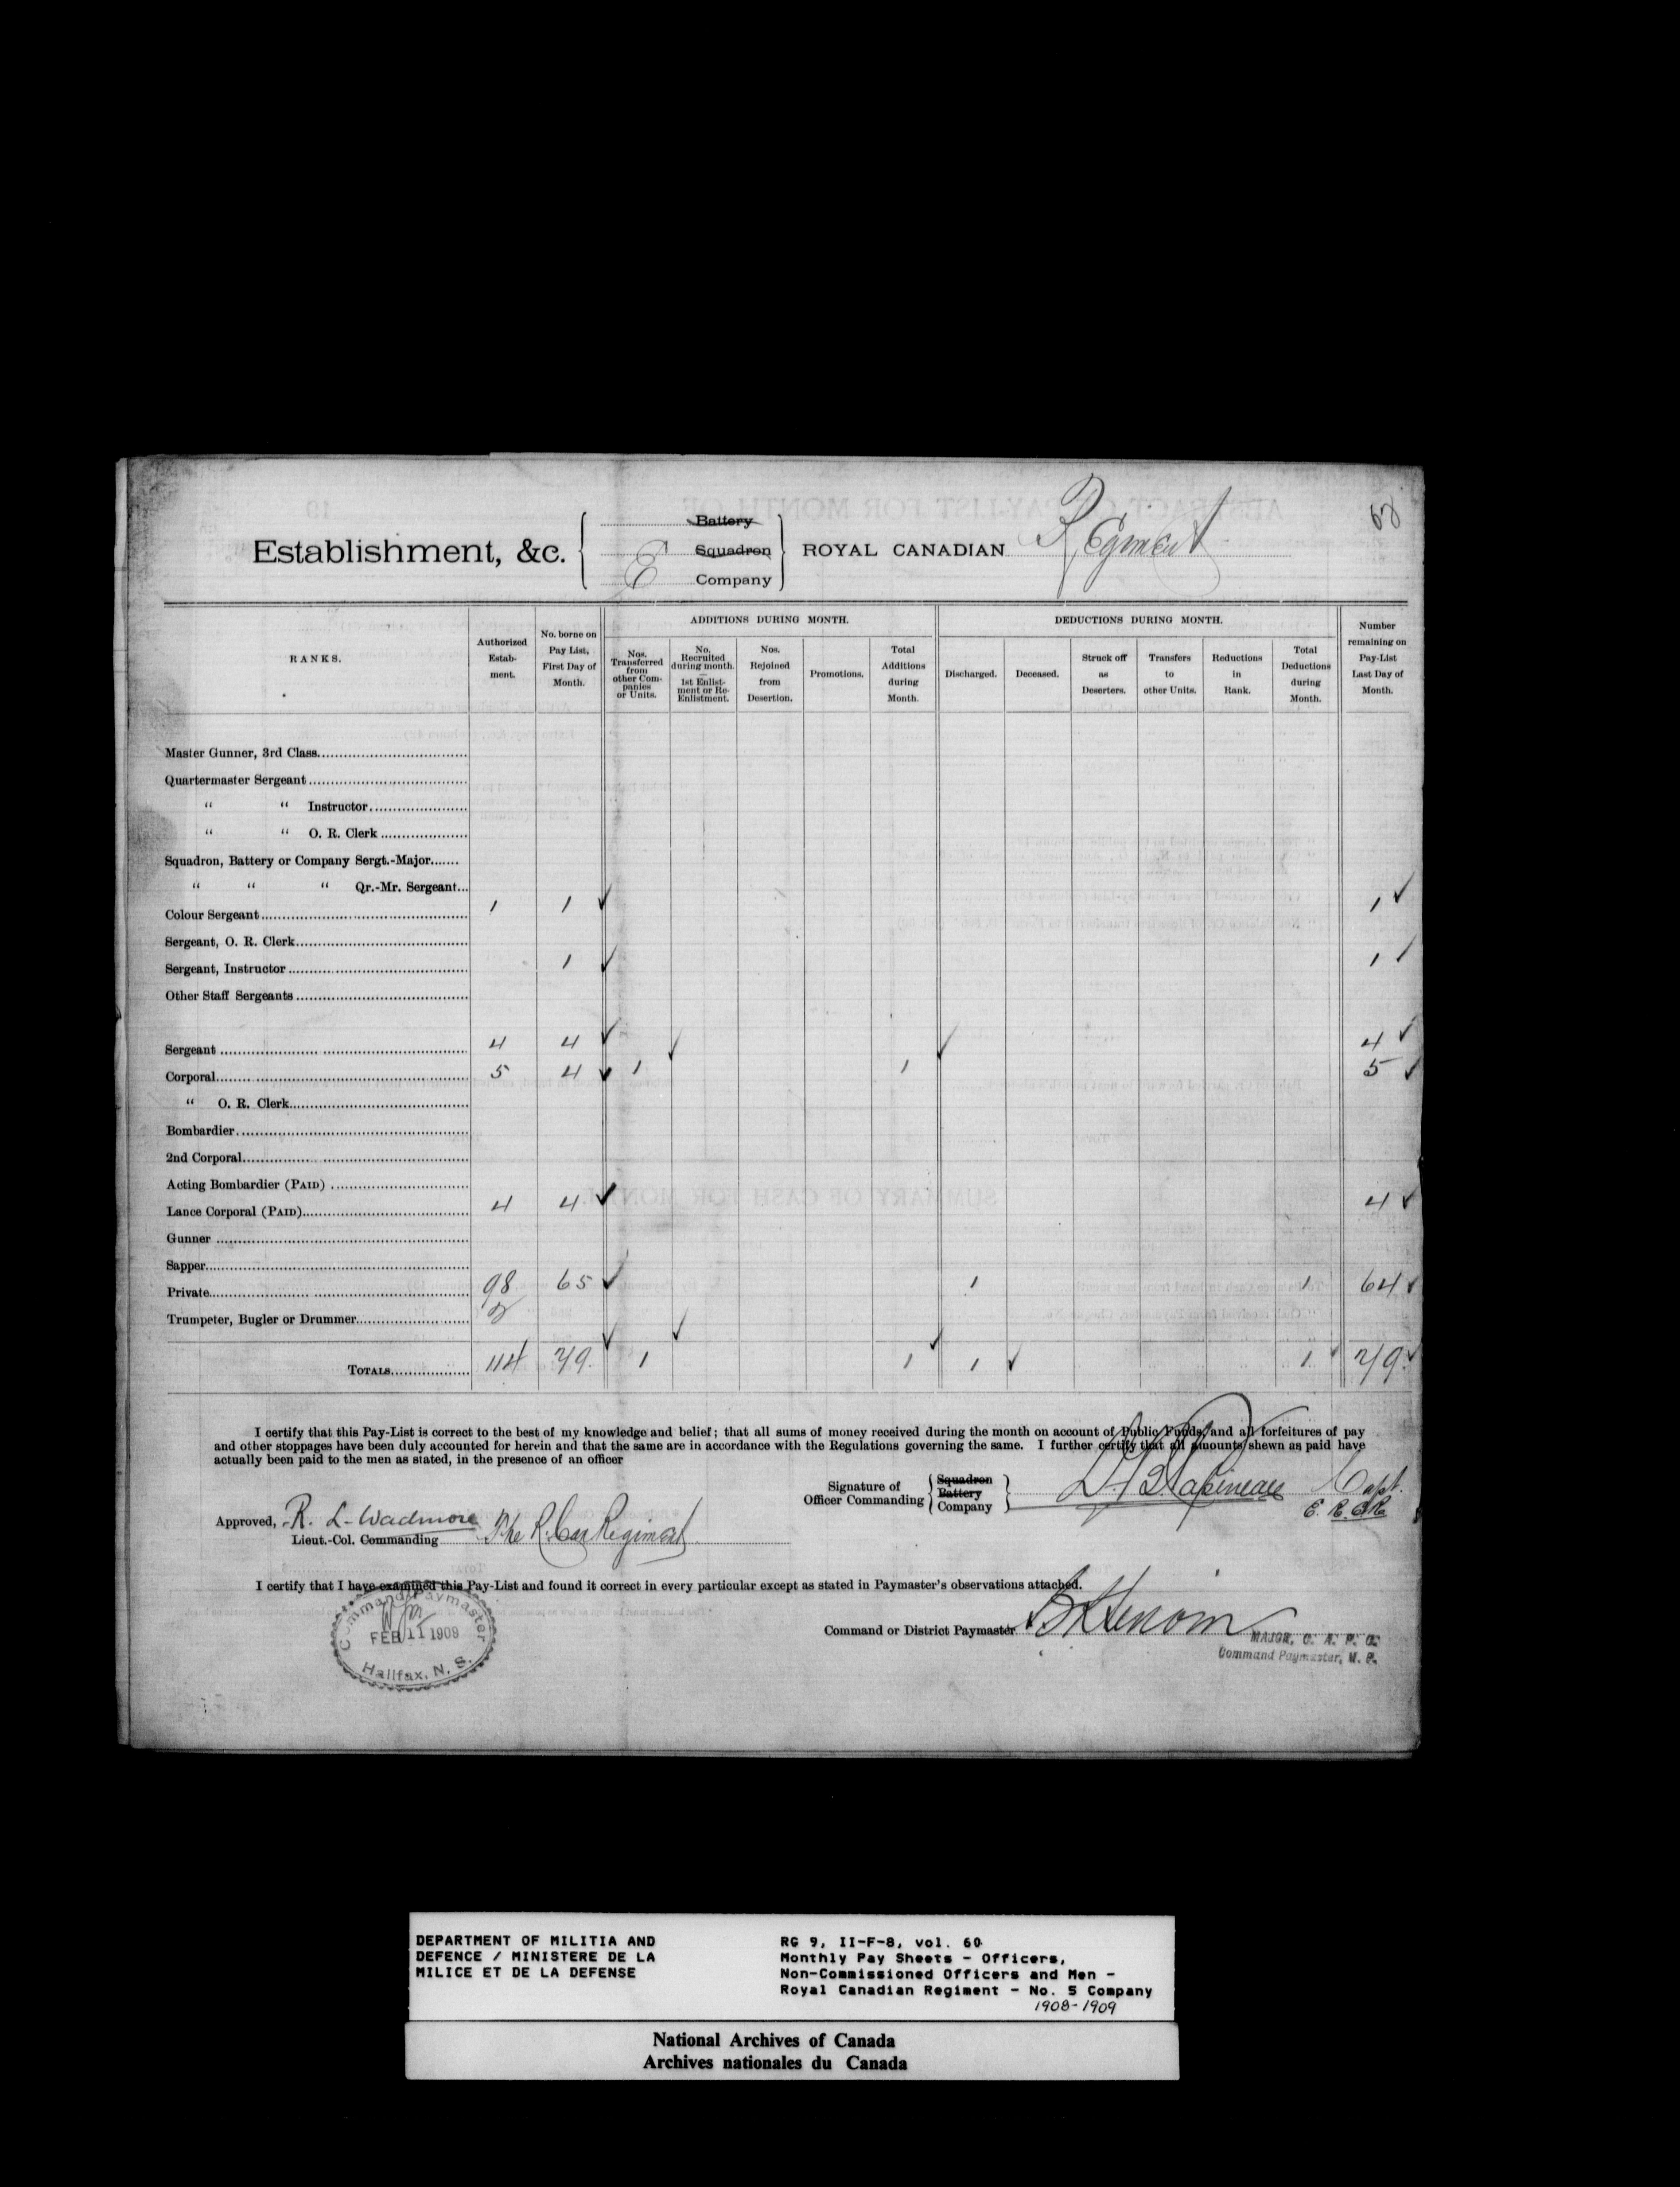 68
Establishment, &c. { E Battery Squadron Company } ROYAL CANADIAN Regiment
RANKS. | Authorized Establishment. | No. borne on Pay List, First Day of Month. | ADDITIONS DURING MONTH. | DEDUCTIONS DURING MONTH. | Number remaining on Pay-List Last Day of Month.
Nos. Transferred from other Companies or Units. | No. Recruited during month. — 1st Enlistment or Re-Enlistment. | Nos. Rejoined from Desertion. | Promotions. | Total Additions during Month. | Discharged. | Deceased. | Struck off as Deserters. | Transfers to other Units. | Reductions in Rank. | Total Deductions during Month.
Master Gunner, 3rd Class
Quartermaster Sergeant
“ “ Instructor
“ “ O. R. Clerk
Squadron, Battery or Company Sergt.-Major
“ “ “ Qr.-Mr. Sergeant
Colour Sergeant 1 1 ✓ 1 ✓
Sergeant, O. R. Clerk
Sergeant, Instructor 1 ✓ 1 ✓
Other Staff Sergeants
Sergeant 4 4 ✓ ✓ ✓ 4 ✓
Corporal 5 4 ✓ 1 1 5 ✓
“ O. R. Clerk
Bombardier
2nd Corporal
Acting Bombardier (PAID)
Lance Corporal (PAID) 4 4 ✓ 4 ✓
Gunner
Sapper
Private 98 65 ✓ 1 1 64 ✓
Trumpeter, Bugler or Drummer 2
TOTALS 114 79. ✓ 1 ✓ 1 ✓ 1 ✓ 1 ✓ 79. ✓
I certify that this Pay-List is correct to the best of my knowledge and belief; that all sums of money received during the month on account of Public Funds, and all forfeitures of pay
and other stoppages have been duly accounted for herein and that the same are in accordance with the Regulations governing the same. I further certify that all amounts shewn as paid have
actually been paid to the men as stated, in the presence of an officer
Signature of Officer Commanding { Squadron Battery Company } Papineau Capt.
E. R.C.R.
Approved, R. L. Wadmore
Lieut.-Col. Commanding The R. Can Regiment
I certify that I have examined this Pay-List and found it correct in every particular except as stated in Paymaster's observations attached.
Command Paymaster
FEB 11 1909
Halifax, N. S.
Command or District Paymaster
MAJOR, C. A. P. C.
Command Paymaster, M. P.
DEPARTMENT OF MILITIA AND
DEFENCE / MINISTERE DE LA
MILICE ET DE LA DEFENSE
RG 9, II-F-8, vol. 60
Monthly Pay Sheets - Officers,
Non-Commissioned Officers and Men -
Royal Canadian Regiment - No. 5 Company
1908-1909
National Archives of Canada
Archives nationales du Canada